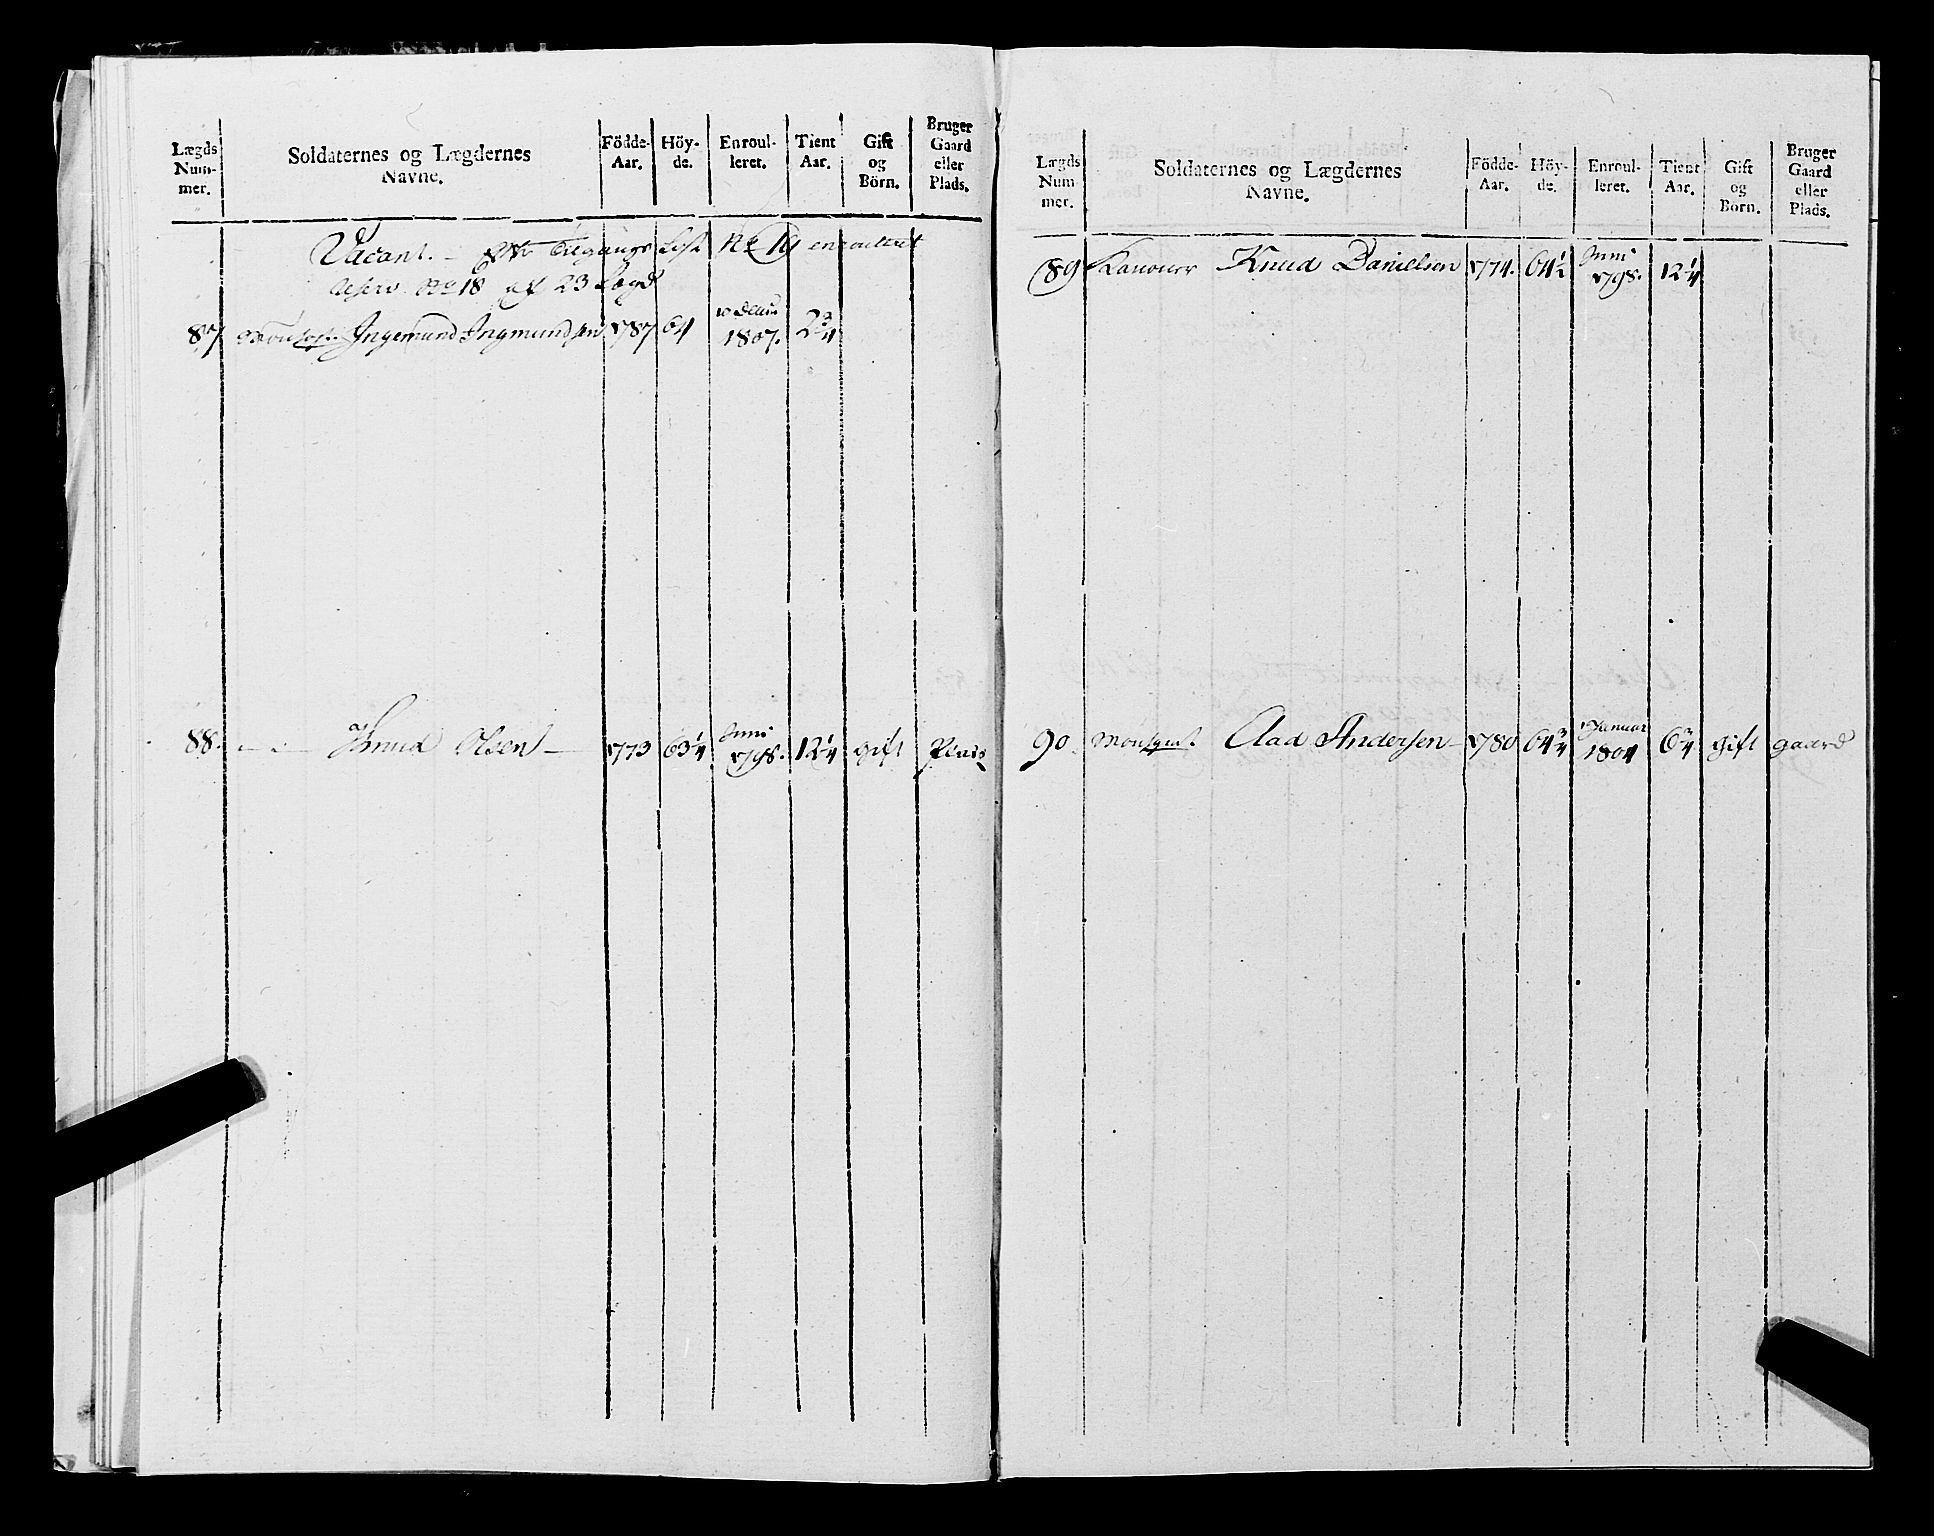 Lægds Num- mer. Soldaternes og Lægdernes Navne. Födde- Aar. Höy- de. Enroul- leret. Tient Aar. Gift og Börn. Bruger Gaard eller Plads.
Vacant. — Tilgangs List No 19 enroulleret
reserv No 18 af 23 Lægd
87 Ingemund Ingmundsen 1787 64 1807. 2 3/4
88. — " — Knud Olsen — 1773 63 1/4 Juni 1798. 12 1/4 gift Plads
Lægds Num- mer. Soldaternes og Lægdernes Navne. Födde- Aar. Höy- de. Enroul- leret. Tient Aar. Gift og Börn. Bruger Gaard eller Plads.
89 Kanoner Knud Danielsen 1774. 64 1/2 Juni 1798. 12 1/4
90. Aad Andersen — 1780 64 3/4 Januar 1804 6 3/4 gift gaard